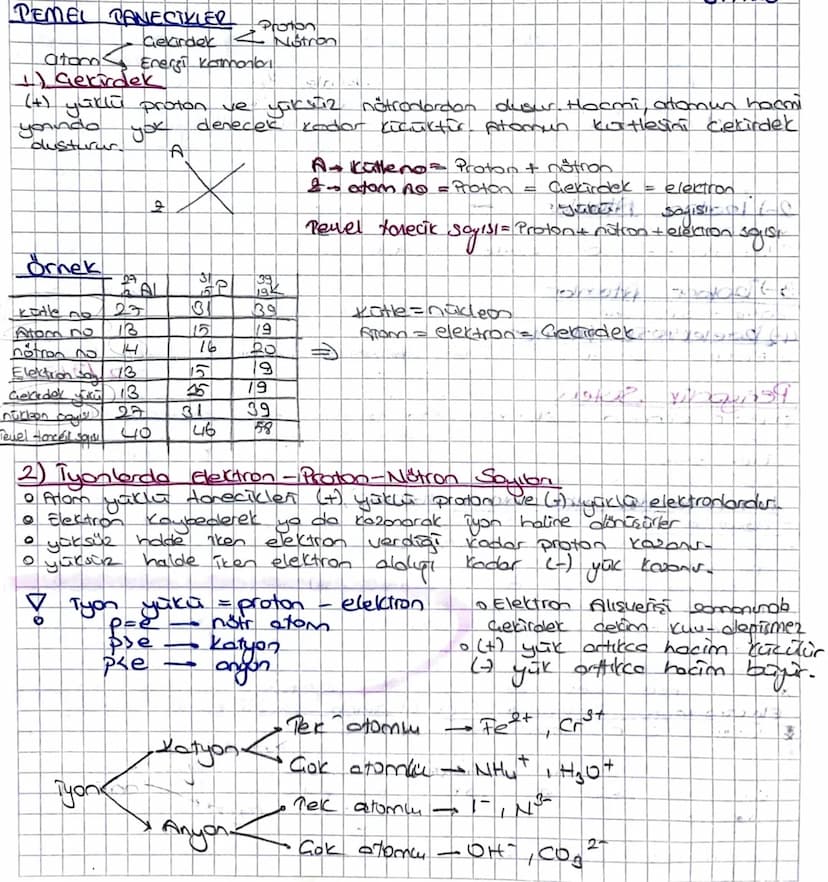 TEMEL TANECİKLER
Atom
Çekirdek
Proton
Nötron
Enerji Katmanları
1) Çekirdek
(+) yüklü proton ve yüksüz nötronlardan oluşur. Hacmi, atomun hacmi
yanında yok denecek kadar küçüktür. Atomun kütlesini çekirdek
oluşturur.
A
Z
A → Kütle no = Proton + nötron
Z → atom no = Proton = Çekirdek yükü = elektron sayısı
Temel tanecik sayısı = Proton + nötron + elektron sayısı
Örnek
27 13 Al 31 15 P 39 19 K
Kütle no 27 31 39
Atom no 13 15 19
nötron no 14 16 20
Elektron say. 13 15 19
Çekirdek yükü 13 15 19
nükleon sayısı 27 31 39
Temel tanecik sayısı 40 46 58
⇒
Kütle = nükleon
Atom = elektron = Çekirdek
2) İyonlarda Elektron - Proton - Nötron Sayıları
o Atom yüklü tanecikleri (+) yüklü proton ve (-) yüklü elektronlardır.
o Elektron kaybederek ya da kazanarak iyon haline dönüşürler
o yüksüz halde iken elektron verdiği kadar proton kazanır.
o yüksüz halde iken elektron aldığı kadar (-) yük kazanır.
İyon yükü = proton - elektron
p=e → nötr atom
p>e → katyon
p<e → anyon
o Elektron Alışverişi sonucunda
Çekirdek çekim kuv. değişmez
o (+) yük arttıkça hacim küçülür
(-) yük arttıkça hacim büyür.
İyon
Katyon
Tek atomlu → Fe²⁺, Cr³⁺
Çok atomlu → NH₄⁺, H₃O⁺
Anyon
Tek atomlu → I⁻, N³⁻
Çok atomlu → OH⁻, CO₃²⁻